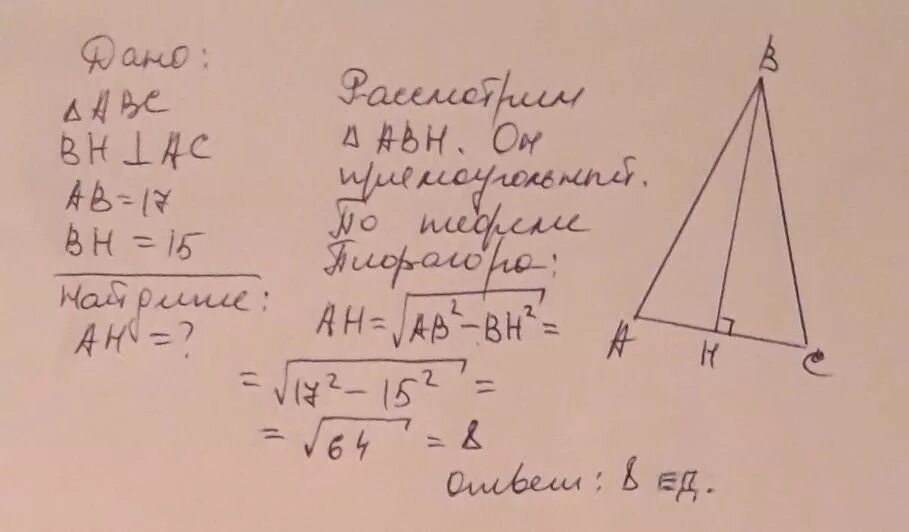 Дано:
△ABC
BH ⊥ AC
AB = 17
BH = 15
Найдите:
AH = ?
Рассмотрим
△ABH. Он
прямоугольный.
По теореме
Пифагора:
AH = √(AB² - BH²) =
= √(17² - 15²) =
= √64 = 8
Ответ: 8 ед.
B
A
H
C